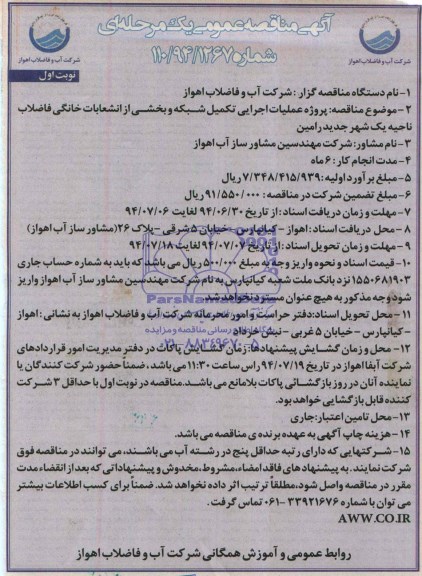 آگهی مناقصه عمومی یک مرحله‌ای
شماره ۱۱۰/۹۴/۱۲۶۷
شرکت آب و فاضلاب اهواز
شرکت آب و فاضلاب اهواز
نوبت اول
۱- نام دستگاه مناقصه گزار : شرکت آب و فاضلاب اهواز
۲- موضوع مناقصه: پروژه عملیات اجرایی تکمیل شبکه و بخشی از انشعابات خانگی فاضلاب
ناحیه یک شهر جدید رامین
۳- نام مشاور: شرکت مهندسین مشاور ساز آب اهواز
۴- مدت انجام کار : ۶ ماه
۵- مبلغ برآورد اولیه: ۷/۳۴۸/۴۱۵/۹۳۹ ریال
۶- مبلغ تضمین شرکت در مناقصه : ۹۱/۵۵۰/۰۰۰ ریال
۷- مهلت و زمان دریافت اسناد: از تاریخ ۹۴/۰۶/۳۰ لغایت ۹۴/۰۷/۰۶
۸- محل دریافت اسناد: اهواز - کیانپارس - خیابان ۵ شرقی - پلاک ۲۶ (مشاور ساز آب اهواز)
۹- مهلت و زمان تحویل اسناد: از تاریخ ۹۴/۰۷/۰۷ لغایت ۹۴/۰۷/۱۸
۱۰- قیمت اسناد و نحوه واریز وجه به مبلغ ۵۰۰/۰۰۰ ریال می باشد که باید به شماره حساب جاری
۱۵۵۰۶۸۱۹۰۳ نزد بانک ملت شعبه کیانپارس به نام شرکت مهندسین مشاور ساز آب اهواز واریز
شود وجه مذکور به هیچ عنوان مسترد نخواهد شد.
۱۱- محل تحویل اسناد: دفتر حراست و امور محرمانه شرکت آب و فاضلاب اهواز به نشانی : اهواز
- کیانپارس - خیابان ۵ غربی - نبش خرداد
۱۲- محل و زمان گشایش پیشنهادها: زمان گشایش پاکات در دفتر مدیریت امور قراردادهای
شرکت آبفا اهواز در تاریخ ۹۴/۰۷/۱۹ راس ساعت ۱۱:۳۰ می باشد، ضمناً حضور شرکت کنندگان یا
نماینده آنان در روز بازگشائی پاکات بلامانع می باشد. مناقصه در نوبت اول با حداقل ۳ شرکت
کننده قابل بازگشایی خواهد بود.
۱۳- محل تامین اعتبار: جاری
۱۴- هزینه چاپ آگهی به عهده برنده ی مناقصه می باشد.
۱۵- شرکتهایی که دارای رتبه حداقل پنج در رشته آب می باشند، می توانند در مناقصه فوق
شرکت نمایند. به پیشنهاد های فاقد امضاء، مشروط، مخدوش و پیشنهاداتی که بعد از انقضاء مدت
مقرر در مناقصه واصل شود، مطلقاً ترتیب اثر داده نخواهد شد. ضمناً برای کسب اطلاعات بیشتر
می توان با شماره ۳۳۹۲۱۶۷۶ -۰۶۱ تماس گرفت .
AWW.CO.IR
روابط عمومی و آموزش همگانی شرکت آب و فاضلاب اهواز